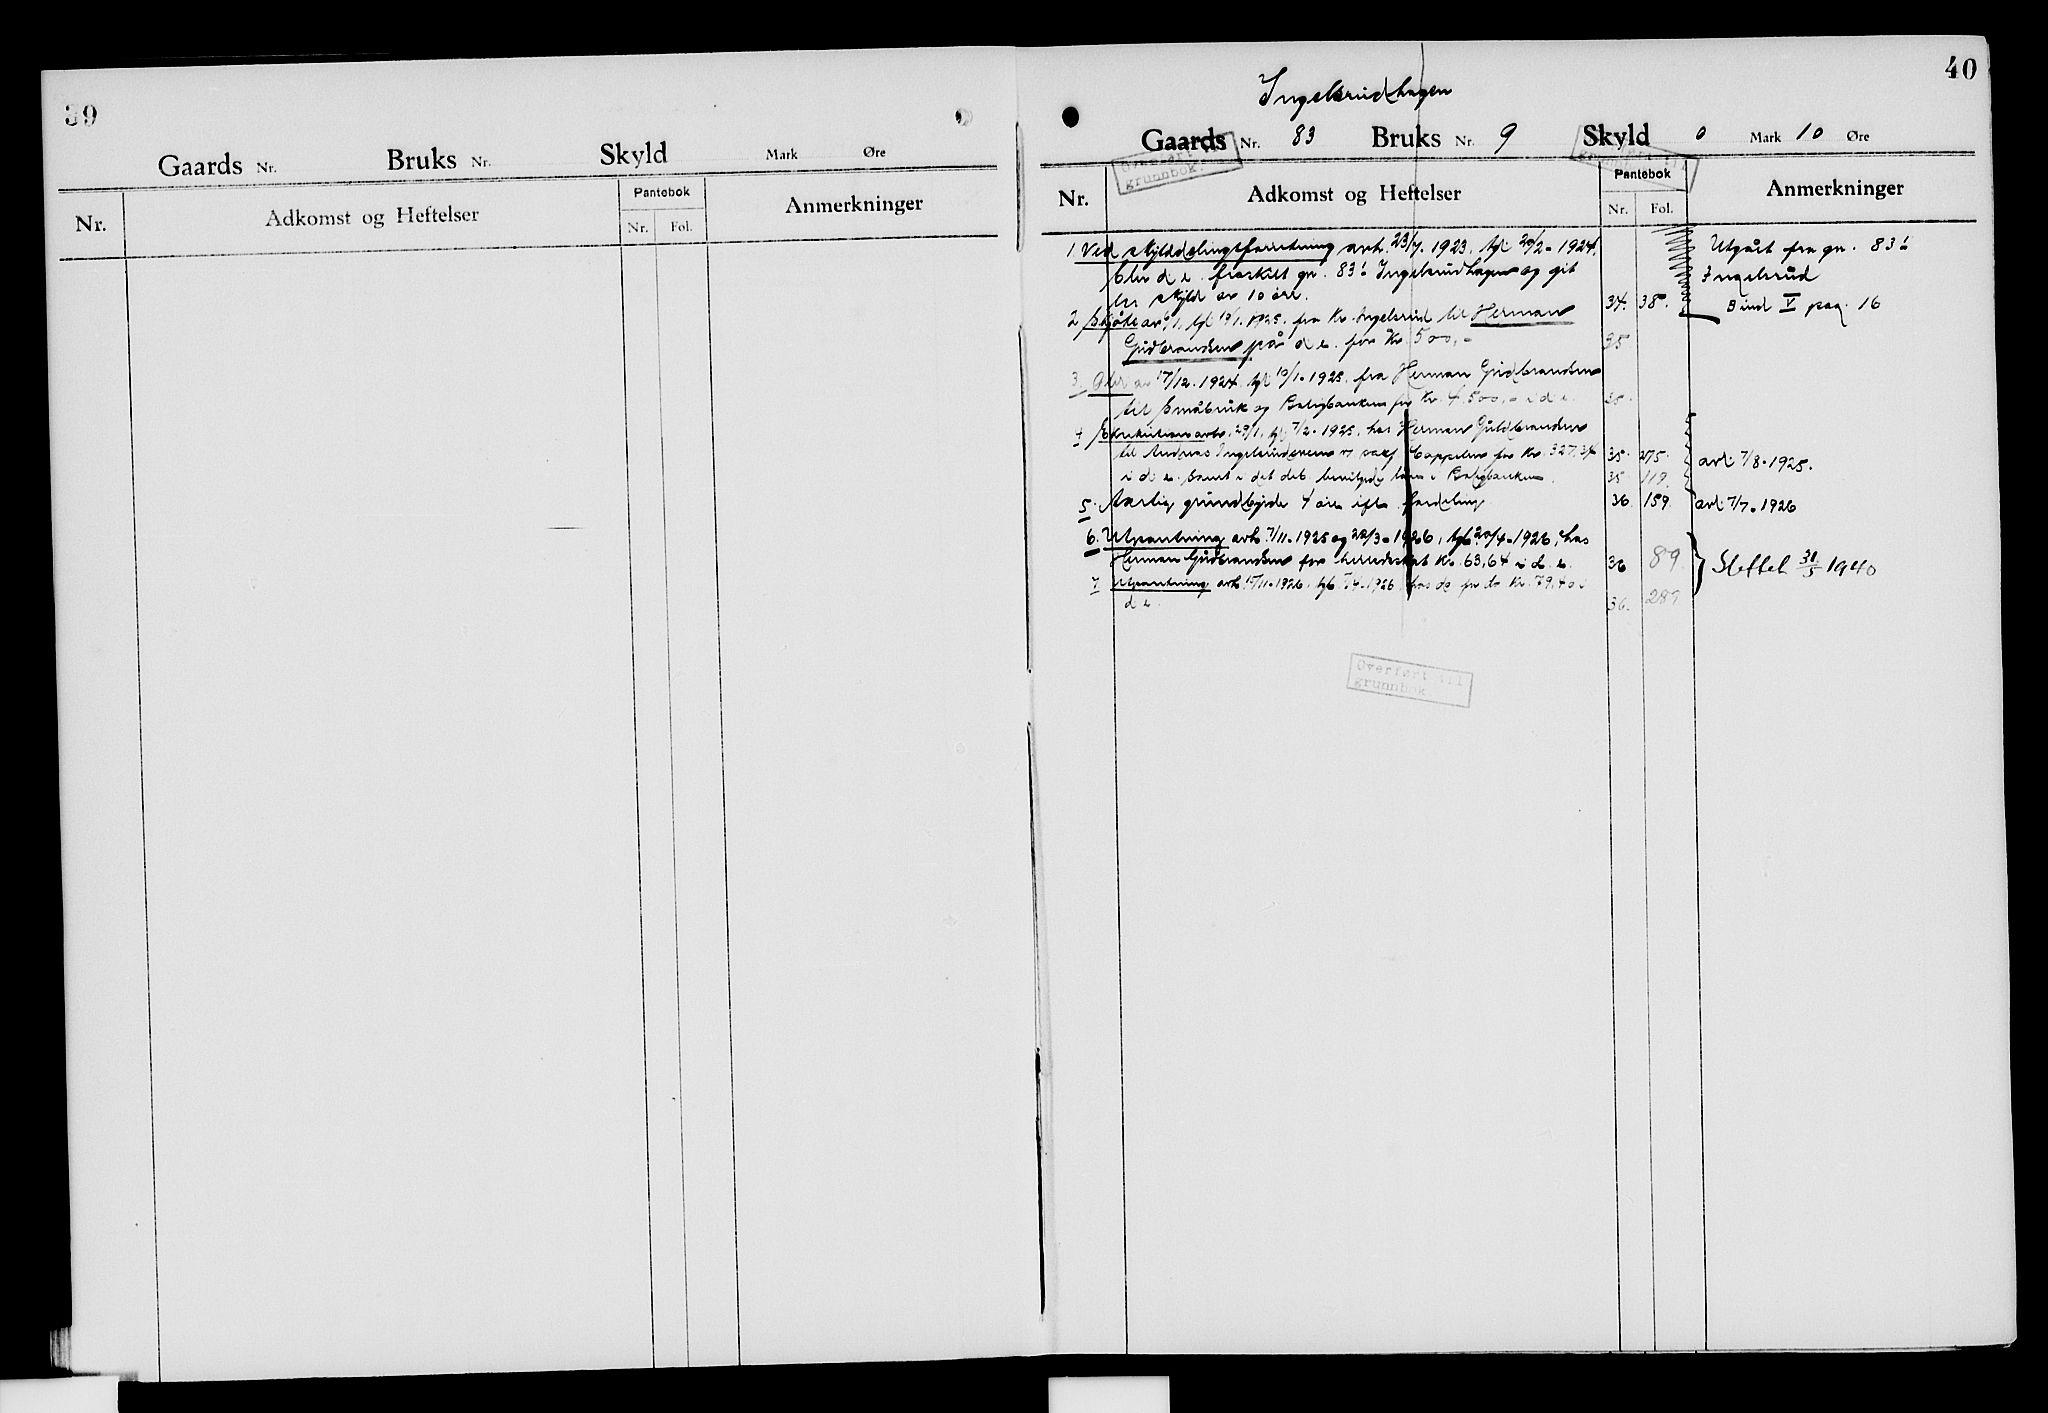 39
Gaards Nr. Bruks Nr. Skyld Mark Øre
Nr. Adkomst og Heftelser Pantebok Nr. Fol. Anmerkninger
40
Ingelsrudhagen
Gaards Nr. 83 Bruks Nr. 9 Skyld 0 Mark 10 Øre
Overført til
grunnbok.
Nr. Adkomst og Heftelser Pantebok Nr. Fol. Anmerkninger
1 Ved skylddelingsforretning avh. 23/7. 1923. tgl. 20/2-1924, Utgått fra gn. 83/6
blev d. e. fraskilt gn. 83/6 Ingelsrudhagen og git Ingelsrud
en skyld av 10 øre. 34. 38. Bind V pag. 16
2 Skjøte av /1. tgl. 10/1. 1925. fra Kr. Ingelsrud til Herman
Gudbrandsen på d. e. for Kr. 500,- 35
3. Obl. av 17/12. 1924. tgl. 10/1-1925. fra Herman Gudbrandsen
til Småbruk og Boligbanken for Kr. 4.500,- i d. e. 35.
4 Eksekution avh. 29/1. tgl. 7/2-1925. hos Herman Guldbrandsen
til Andreas Ingelsrudeieren v/ sakf. Cappelen for Kr. 327,34 35. 275. avl. 7/8-1925.
i d. e. samt i det deb. bevilgede laan i Boligbanken. 35. 119.
5. Aarlig grundbyrde 4 øre efter fordeling 36 159. avl. 7/7-1926
6. Utpantning avh. 7/11-1925 og 22/3-1926, tgl. 20/4-1926, hos
Herman Gudbrandsen for herredsskat Kr. 63,64 i d. e. 36 89. Slettet 31/5 1940
7 Utpantning avh. 15/11-1926. tgl. 1926 hos do for do Kr. 79,40 i
d. e. 36. 287
Overført til
grunnbok